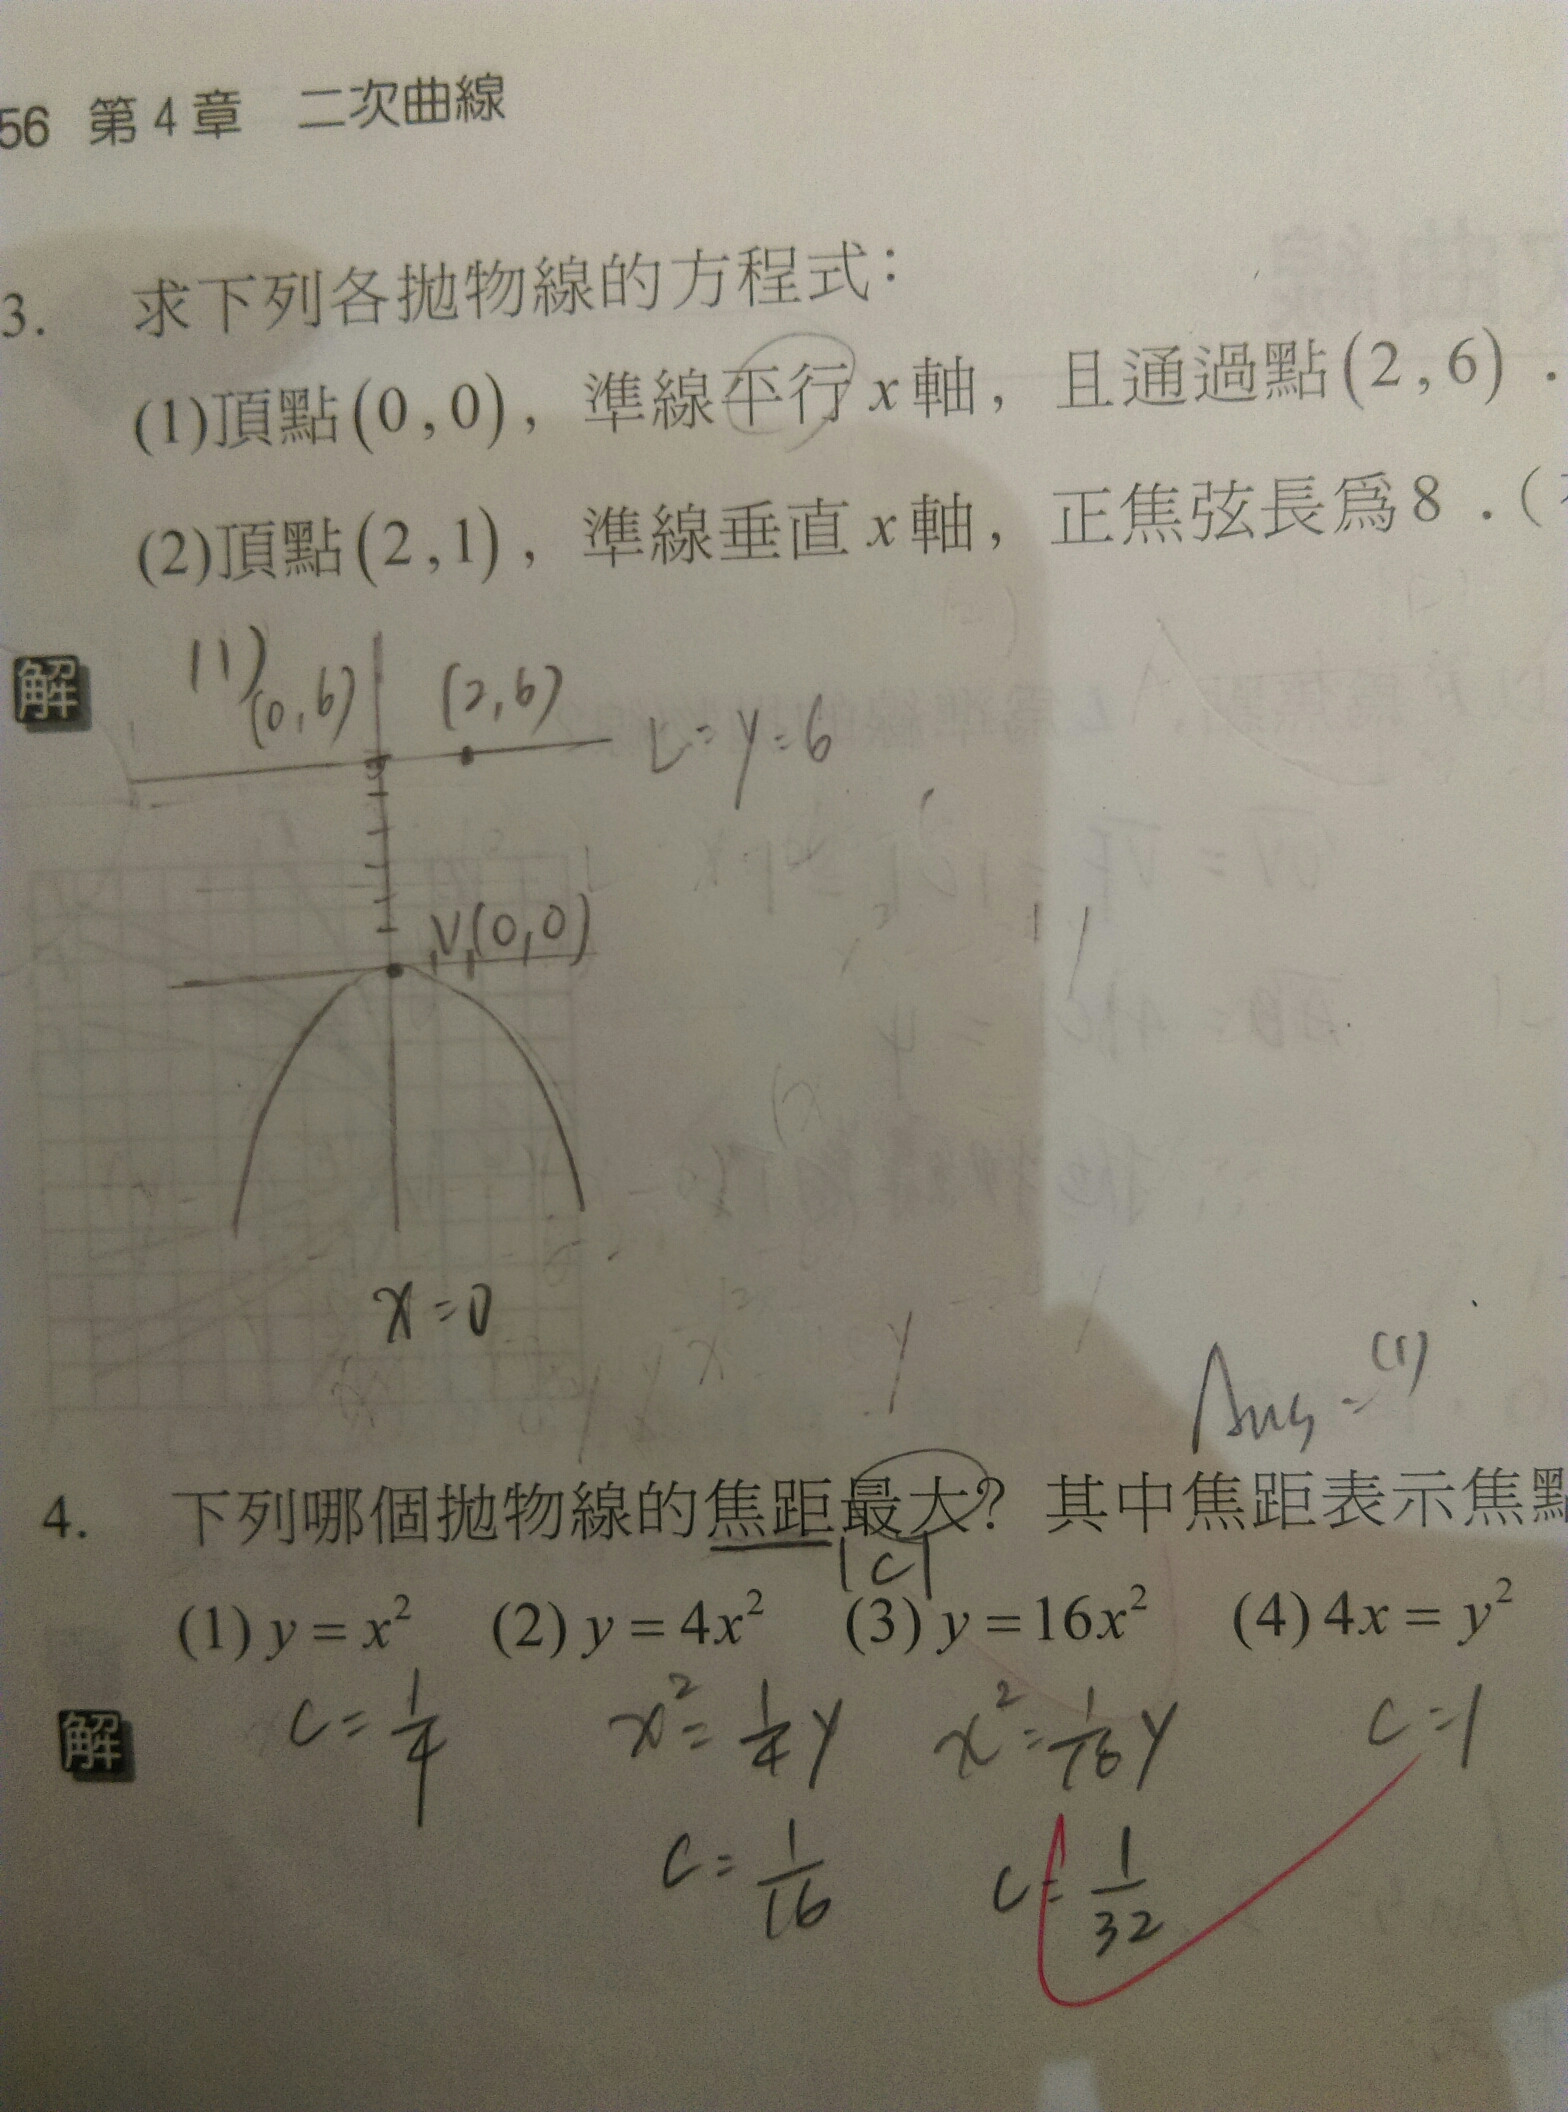 56 第4章 二次曲線
3. 求下列各拋物線的方程式：
(1)頂點(0,0)，準線平行x軸，且通過點(2,6)．
(2)頂點(2,1)，準線垂直x軸，正焦弦長為8．(
解 (1)
(0,6) (2,6) L=y=6
V(0,0)
x=0
Ans=(1)
4. 下列哪個拋物線的焦距最大？其中焦距表示焦點
|c|
(1) y=x² (2) y=4x² (3) y=16x² (4) 4x=y²
解 c=1/4 x²=1/4y x²=1/16y c=1
c=1/16 c=1/32